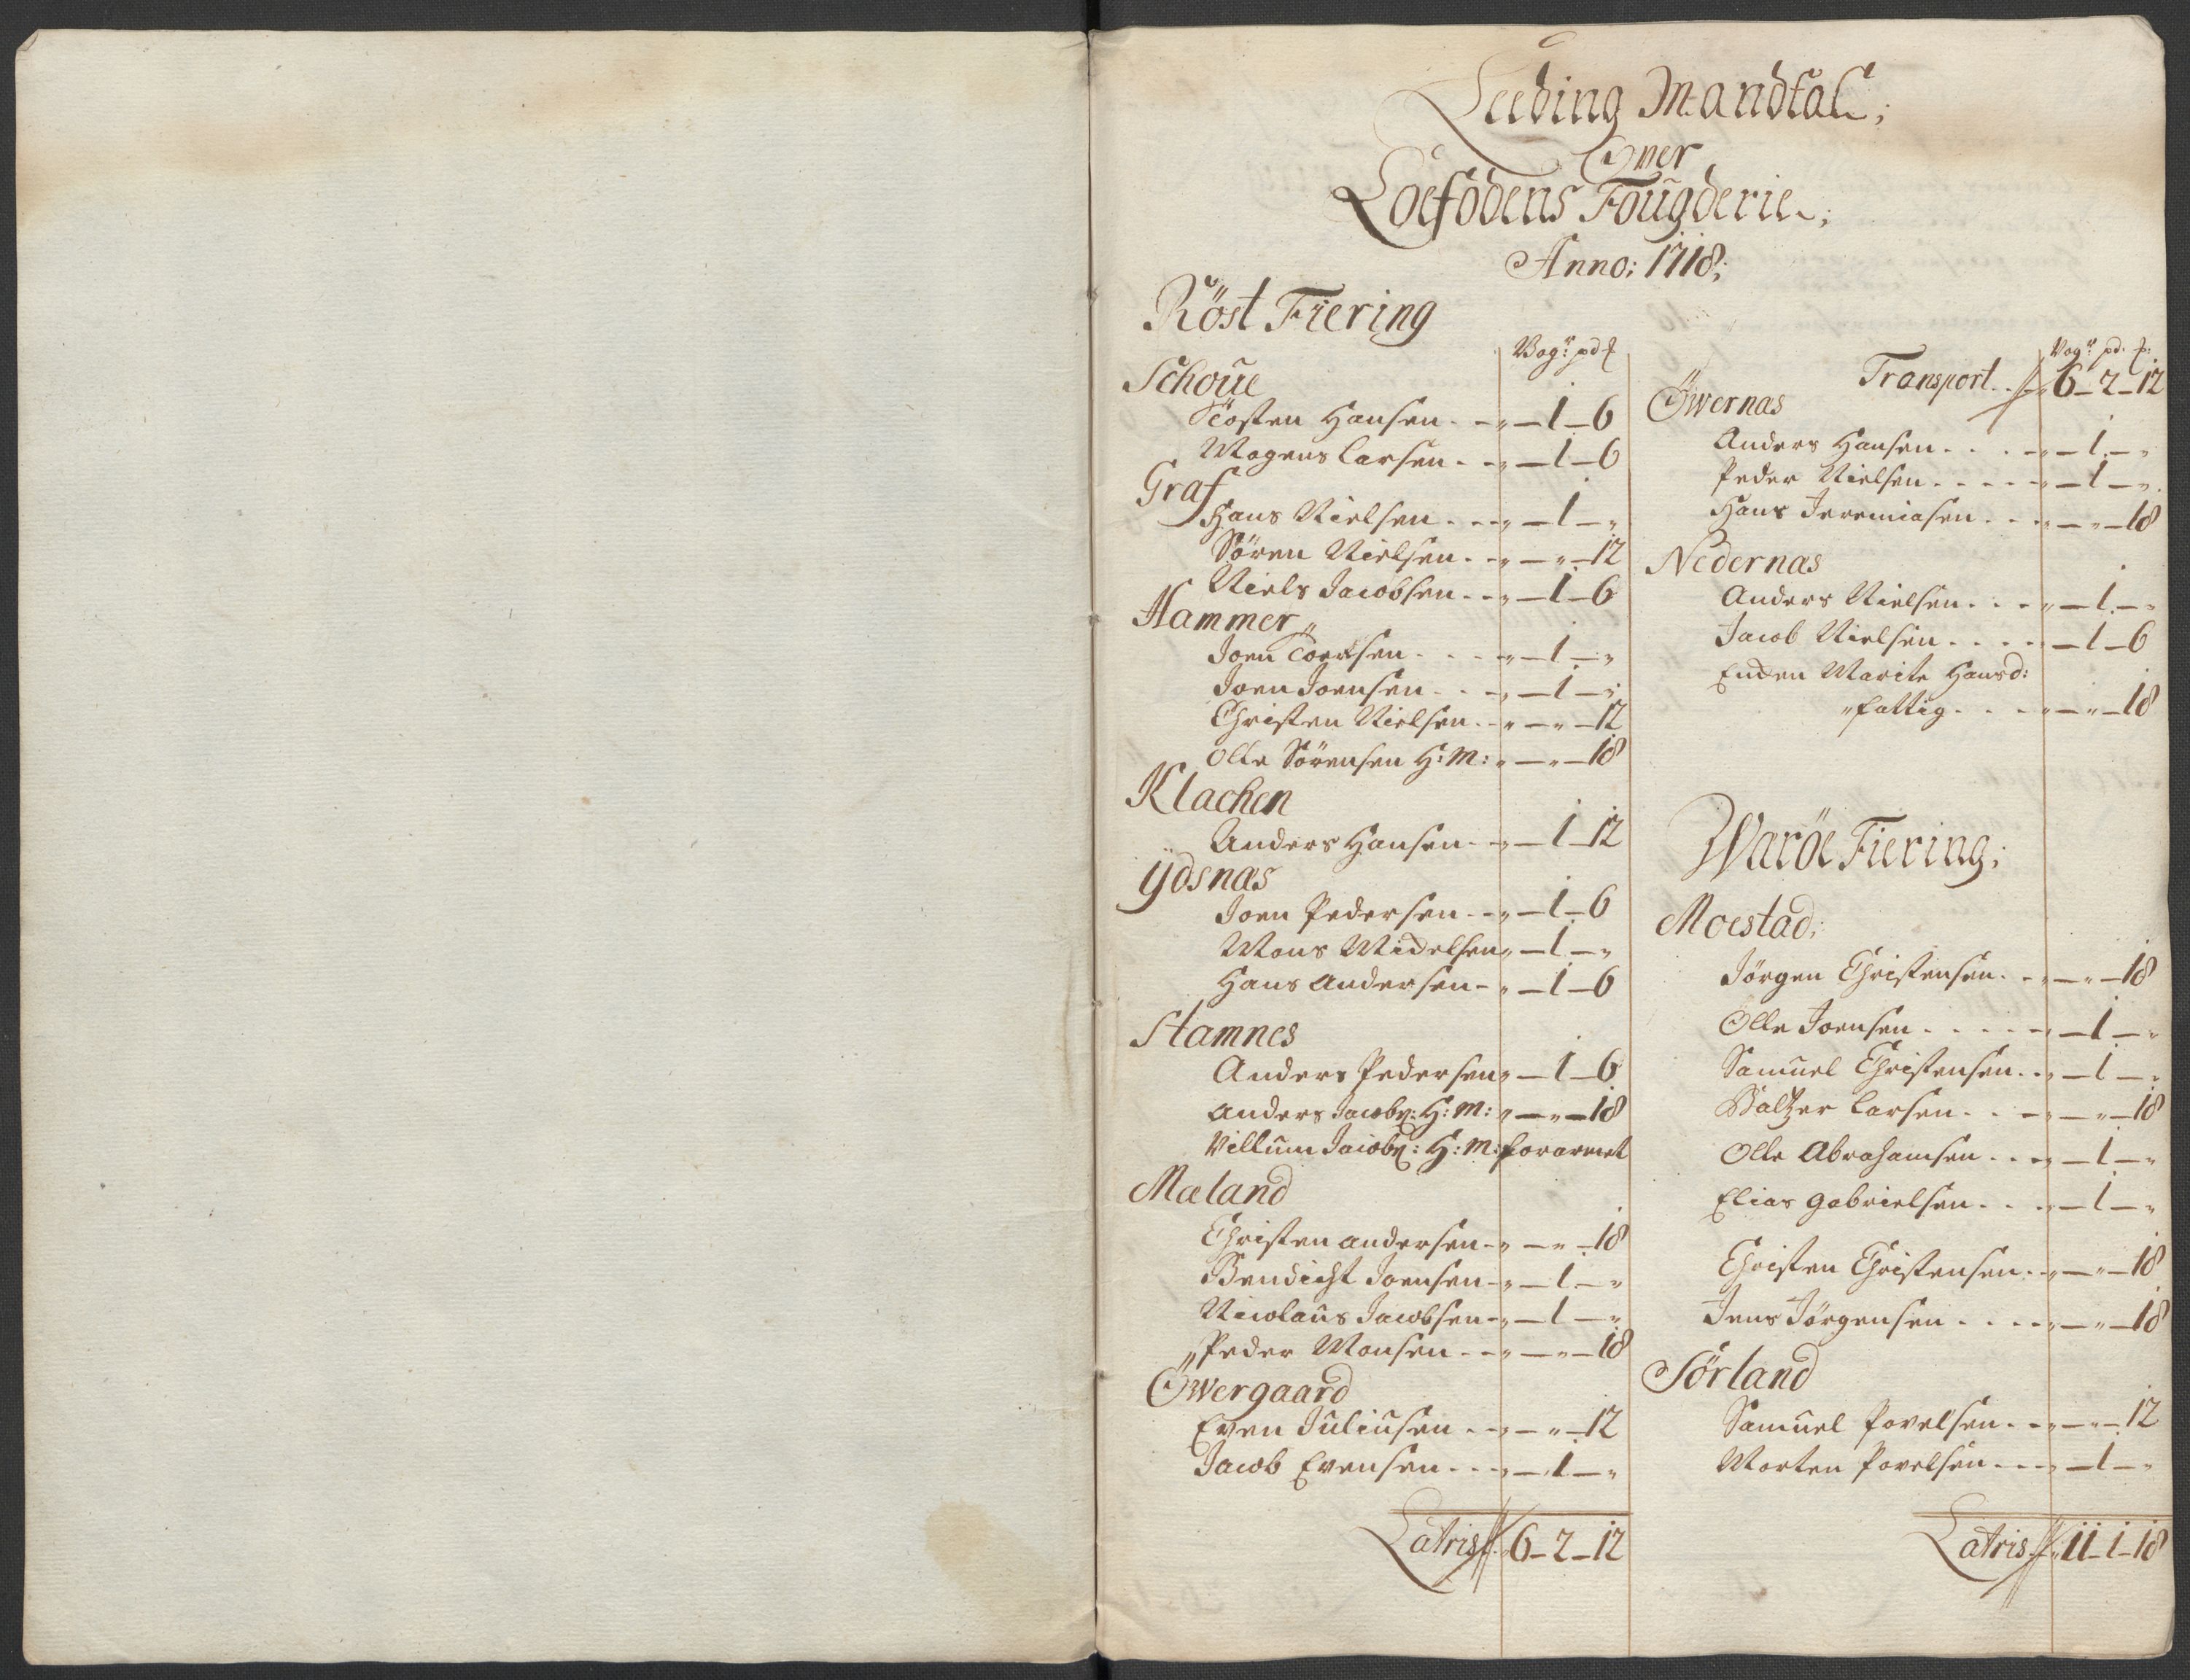 Leeding Mandtal;
Over
Loefodens Fougderie;
Anno: 1718;
Röst Fiering
Vog: pd
Schoue
Tosten Hansen - - „ — 1 — 6
Mogens Larsen - - „ — 1 — 6
Graf
Hans Nielsen - - - „ — 1 — „
Sören Nielsen - - „ — „ — 12
Niels Jacobsen - - „ — 1 — 6
Hammer
Joen Toersen - - - „ — 1 — „
Joen Joensen - - - „ — 1 — „
Christen Nielsen - - „ — „ — 12
Olle Sörensen H: M: „ — „ — 18
Klachen
Anders Hansen - - „ — 1 — 12
Ydsnæs
Joen Pedersen - - „ — 1 — 6
Mons Midelsen „ — 1 — „
Hans Andersen - „ — 1 — 6
Stamnes
Anders Pedersen „ — 1 — 6
Anders Jacobs: H: M: „ — „ — 18
Villum Jacobs: H: M: forarmet
Mæland
Christen Andersen - „ — „ — 18
Bendicht Joensen - „ — 1 — „
Nicolaus Jacobsen - „ — 1 — „
Peder Monsen - - „ — „ — 18
Öwergaard
Even Juliusen - - „ — „ — 12
Jacob Evensen - - - „ — 1 — „
Latris 6 — 2 — 12
Vog: pd:
Transport - - 6 — 2 — 12
Öwernæs
Anders Hansen - - - - „ — 1 — „
Peder Nielsen - - - - - „ — 1 — „
Hans Jeremiasen - - - „ — „ — 18
Nedernæs
Anders Nielsen - - - „ — 1 — „
Jacob Nielsen - - - - „ — 1 — 6
Encken Marite Hansd:
fattig - - - - „ — „ — 18
Waröe Fiering;
Moestad;
Jörgen Christensen - - „ — „ — 18
Olle Joensen - - - - - „ — 1 — „
Samuel Christensen - - „ — 1 — „
Baltzer Larsen - - - „ — „ — 18
Olle Abrahamsen - - - „ — 1 — „
Elias Gabrielsen - - - „ — 1 — „
Christen Christensen - - „ — „ — 18
Jens Jörgensen - - - - „ — „ — 18
Sörland
Samuel Povelsen - - „ — „ — 12
Morten Povelsen - - - „ — 1 — „
Latris 11 — 1 — 18